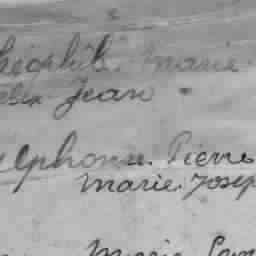 Théophile Marie
Félix Jean
Alphonse Pierre
Marie Josep
Marie